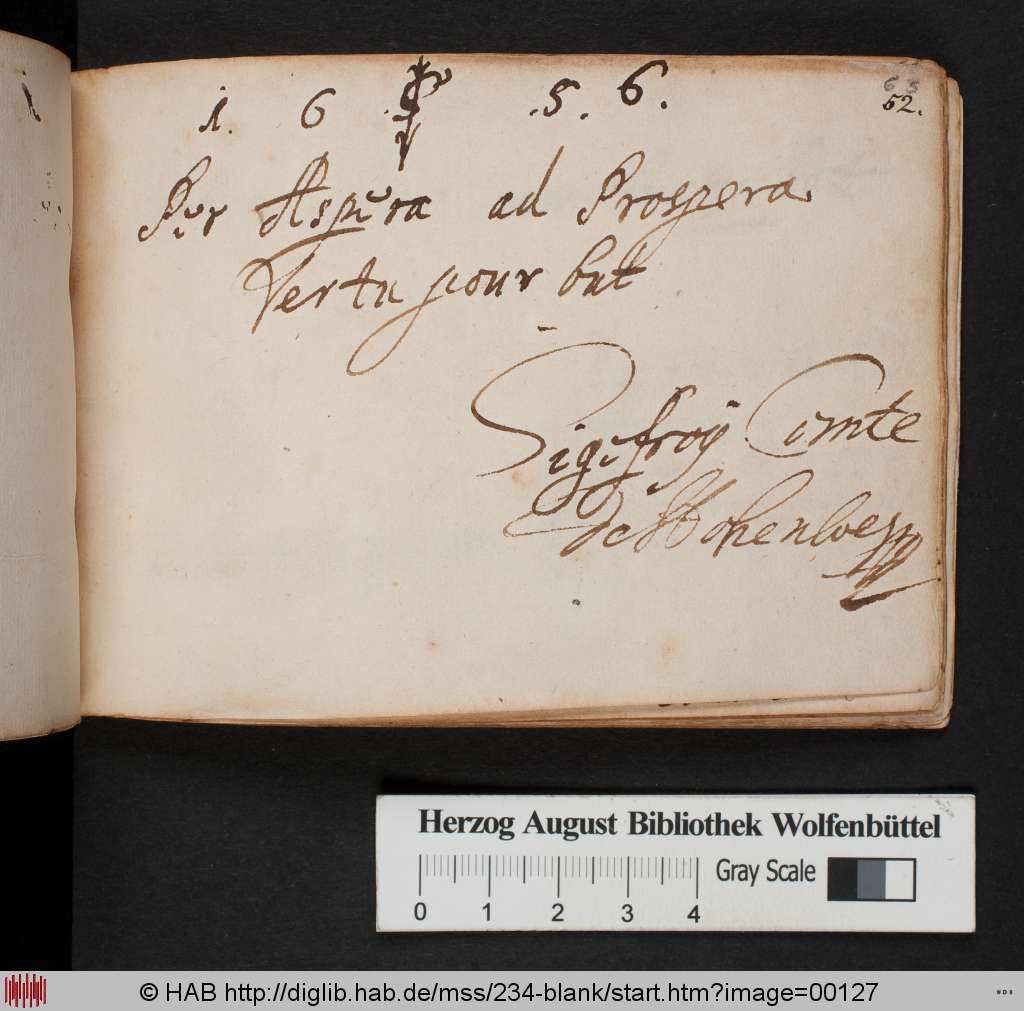 1. 6 .5. 6.
63
52.
Per Aspera ad Prospera
Vertu pour but
Sigefroÿ Comte
de Hohenloe
Herzog August Bibliothek Wolfenbüttel
Gray Scale
0 1 2 3 4
© HAB http://diglib.hab.de/mss/234-blank/start.htm?image=00127